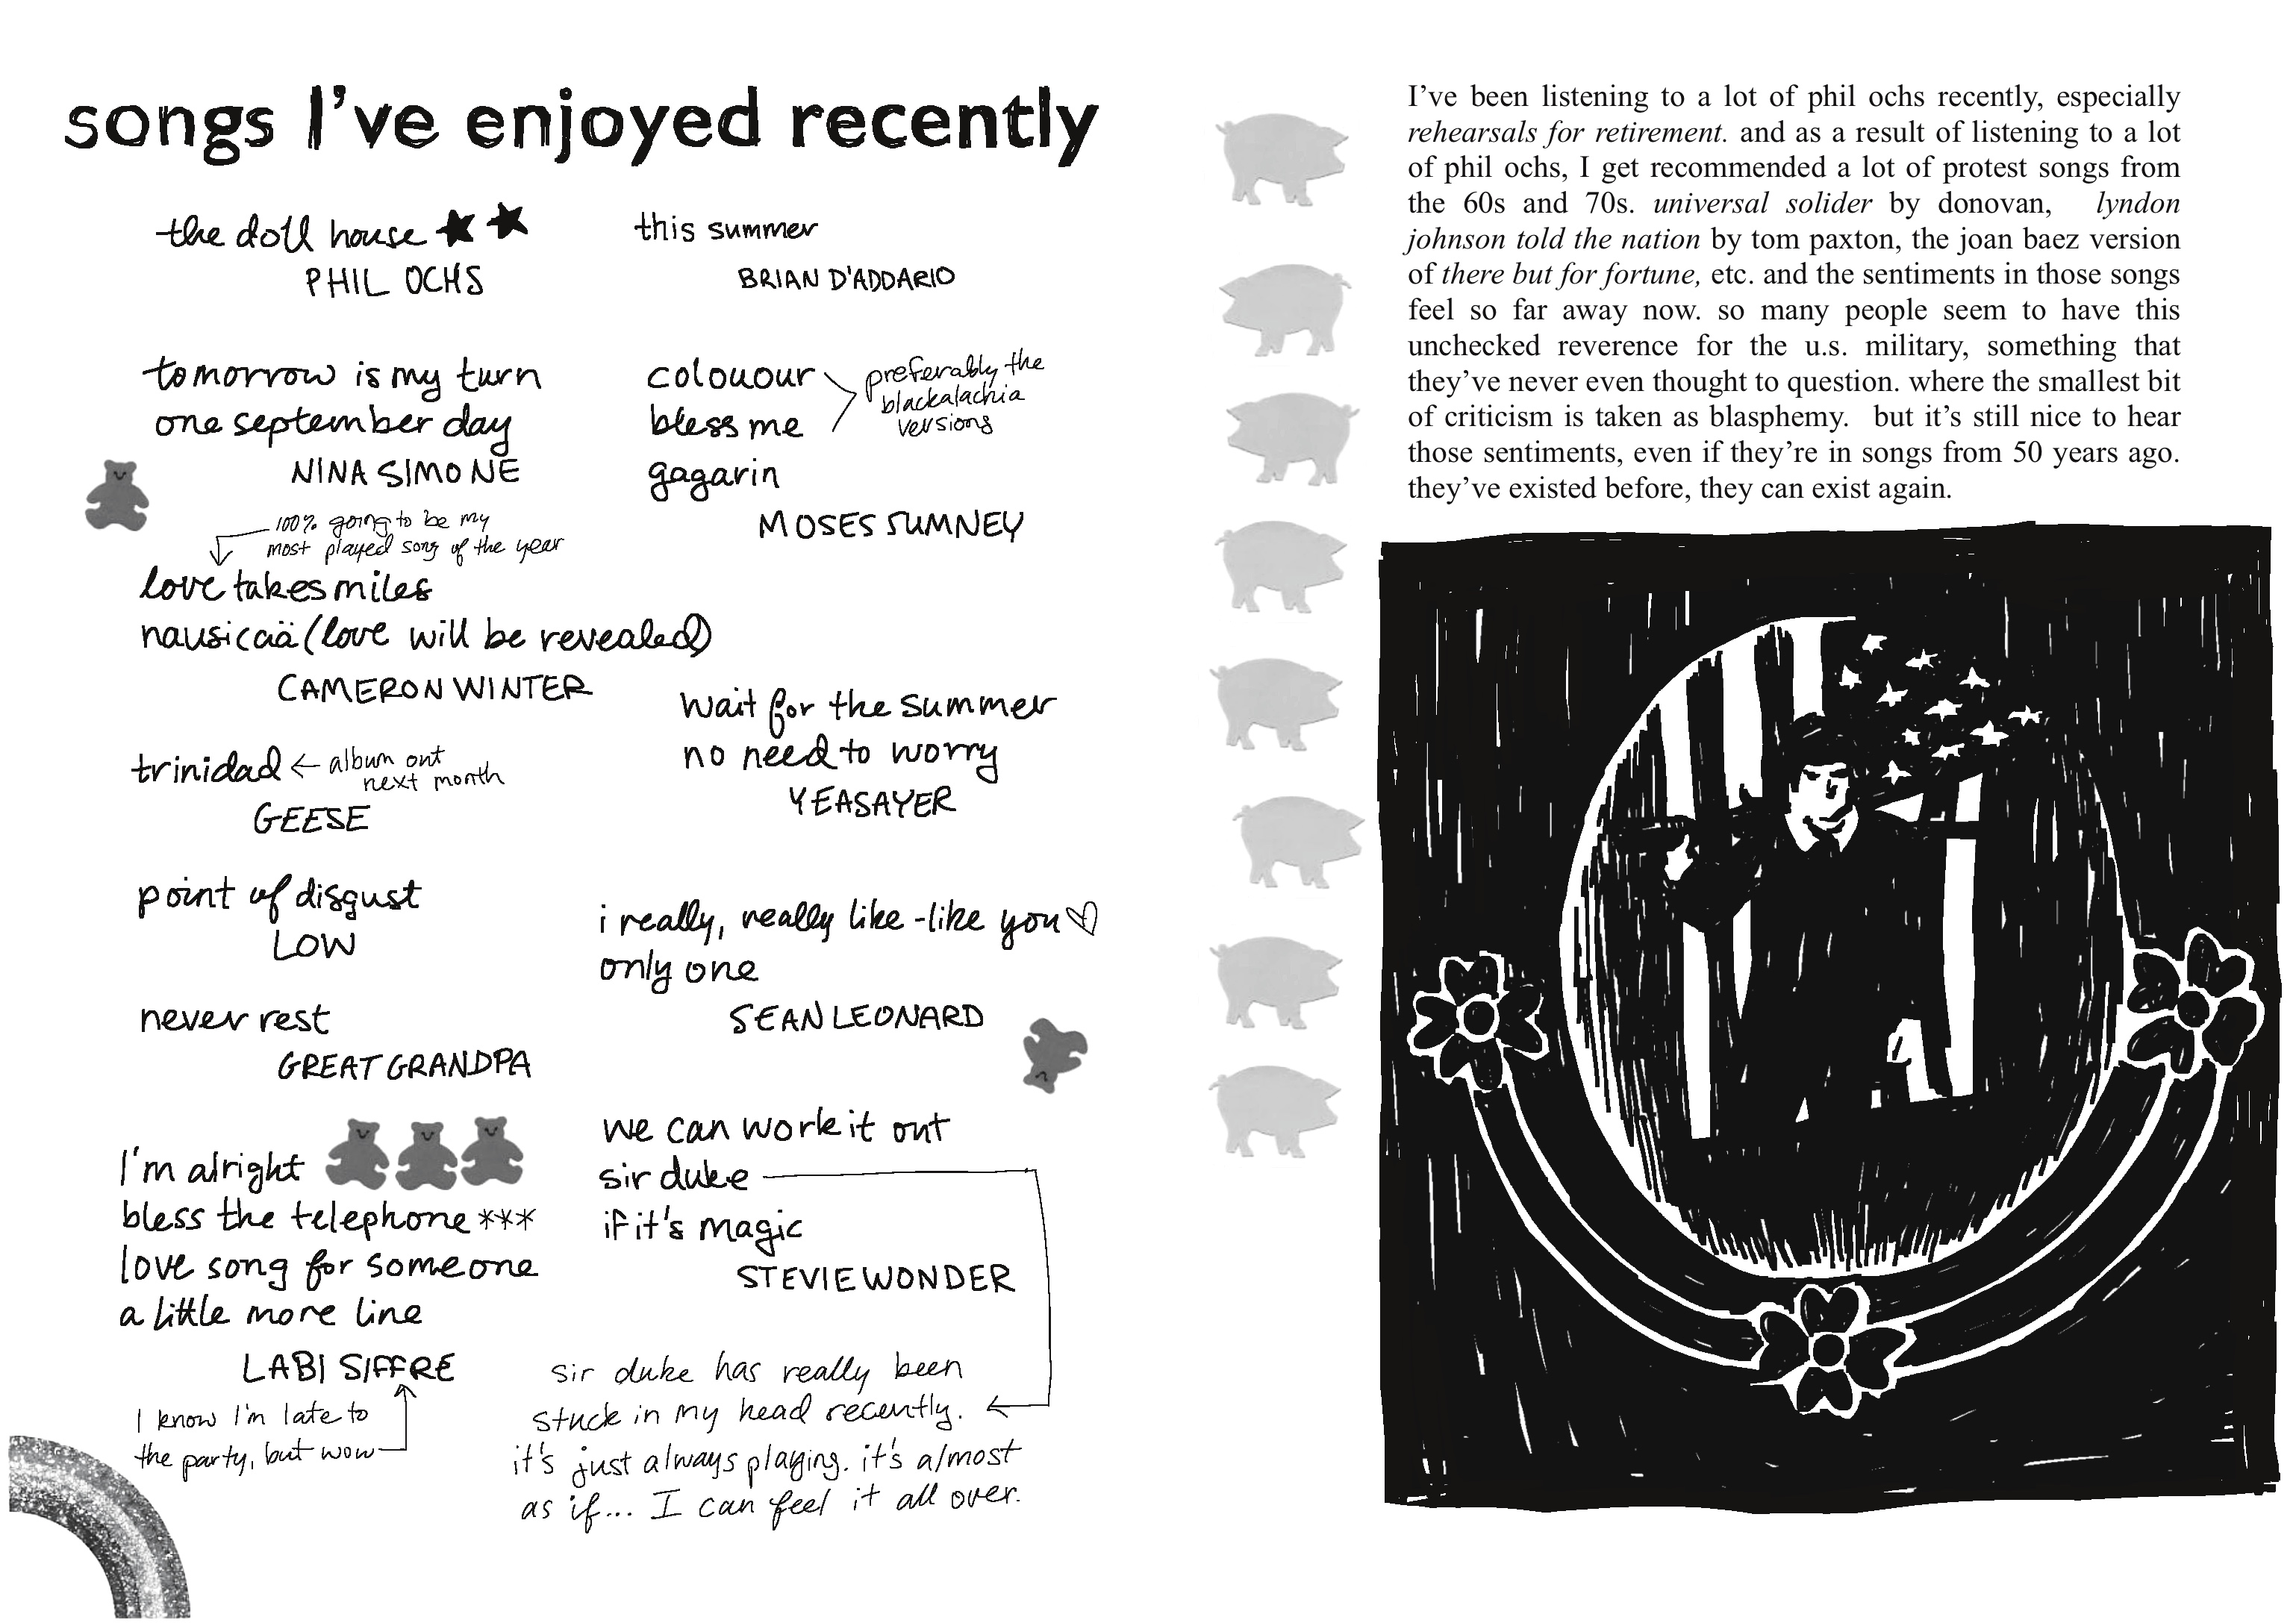 songs I've enjoyed recently
the doll house ★ ★
PHIL OCHS
tomorrow is my turn
one september day
NINA SIMONE
100% going to be my
most played song of the year
love takes miles
nausicaä (love will be revealed)
CAMERON WINTER
trinidad ← album out
next month
GEESE
point of disgust
LOW
never rest
GREAT GRANDPA
I'm alright
bless the telephone ***
love song for someone
a little more line
LABI SIFFRE
I know I'm late to
the party, but wow
this summer
BRIAN D'ADDARIO
colouour
bless me
gagarin
preferably the
blackalachia
versions
MOSES SUMNEY
wait for the summer
no need to worry
YEASAYER
i really, really like-like you ♡
only one
SEAN LEONARD
we can work it out
sir duke
if it's magic
STEVIE WONDER
sir duke has really been
stuck in my head recently.
it's just always playing. it's almost
as if... I can feel it all over.
I've been listening to a lot of phil ochs recently, especially
rehearsals for retirement. and as a result of listening to a lot
of phil ochs, I get recommended a lot of protest songs from
the 60s and 70s. universal solider by donovan, lyndon
johnson told the nation by tom paxton, the joan baez version
of there but for fortune, etc. and the sentiments in those songs
feel so far away now. so many people seem to have this
unchecked reverence for the u.s. military, something that
they've never even thought to question. where the smallest bit
of criticism is taken as blasphemy. but it's still nice to hear
those sentiments, even if they're in songs from 50 years ago.
they've existed before, they can exist again.